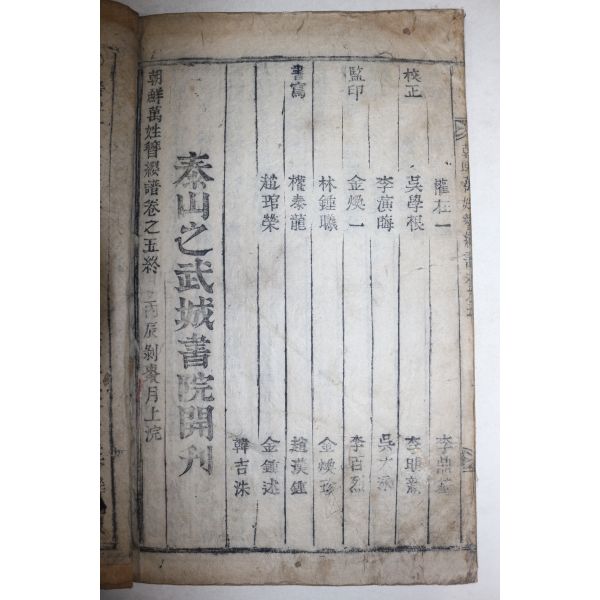 權 一 李
校正 吳學根 李明
李演晦 吳
監印 金煥一 李百烈
林鍾聯 金煥珍
書寫 權泰龍 趙漢鍾
趙琯榮 金鍾述
韓吉洙
泰山之武城書院開刊
朝鮮萬姓簪纓譜卷之五終 丙辰剝棗月上浣